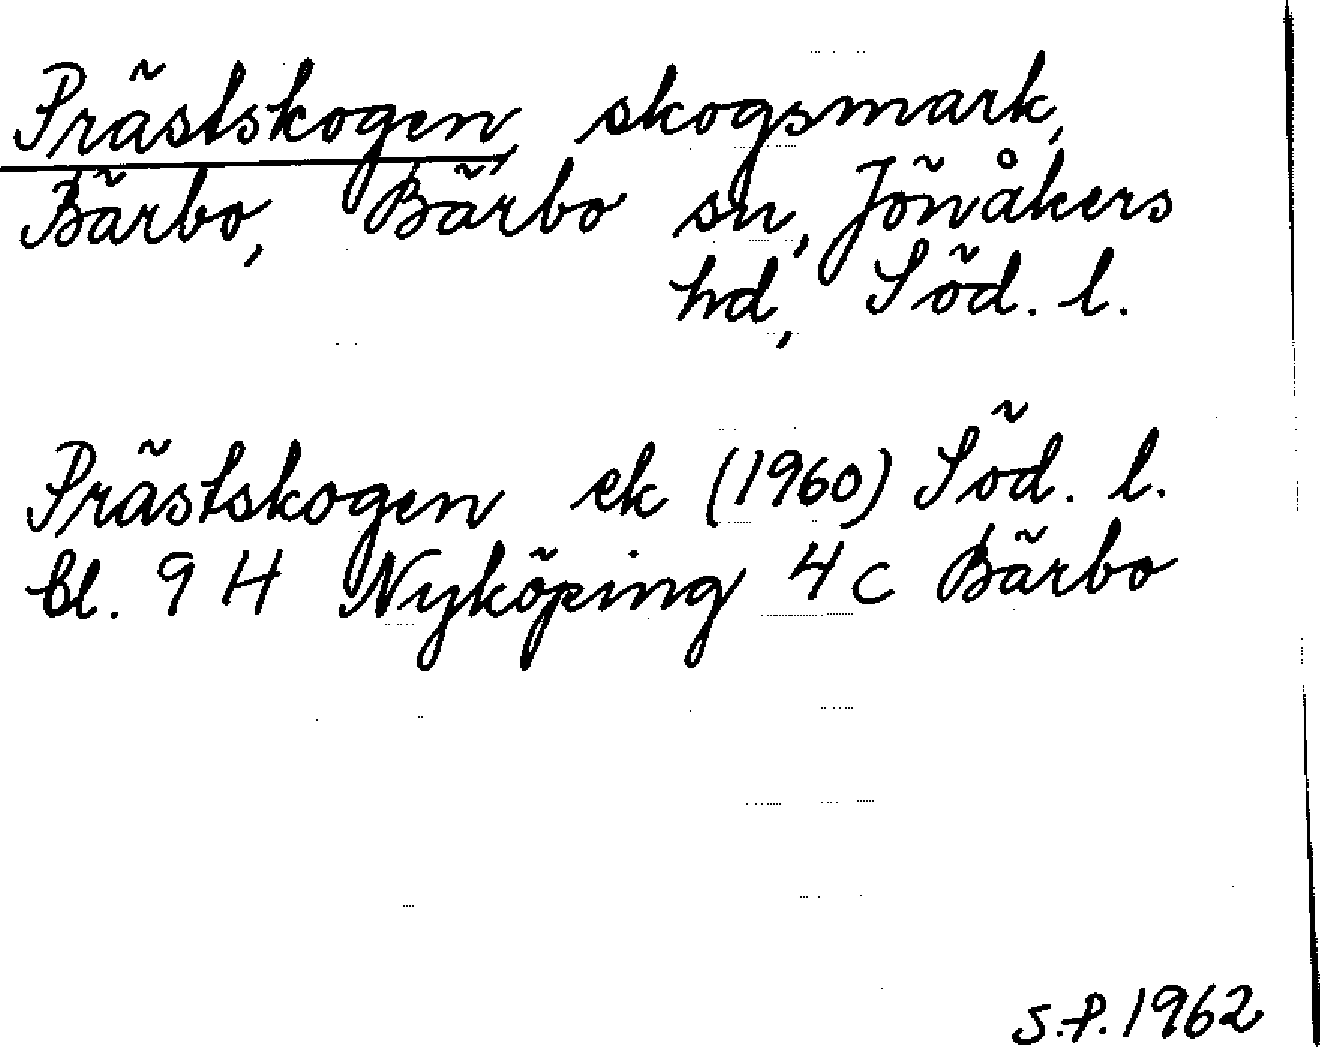 Prästskogen, skogsmark,
Bärbo, Bärbo sn, Jönåkers
hd, Söd. l.
Prästskogen ek (1960) Söd. l.
bl. 9 H Nyköping 4 c Bärbo
S.P. 1962